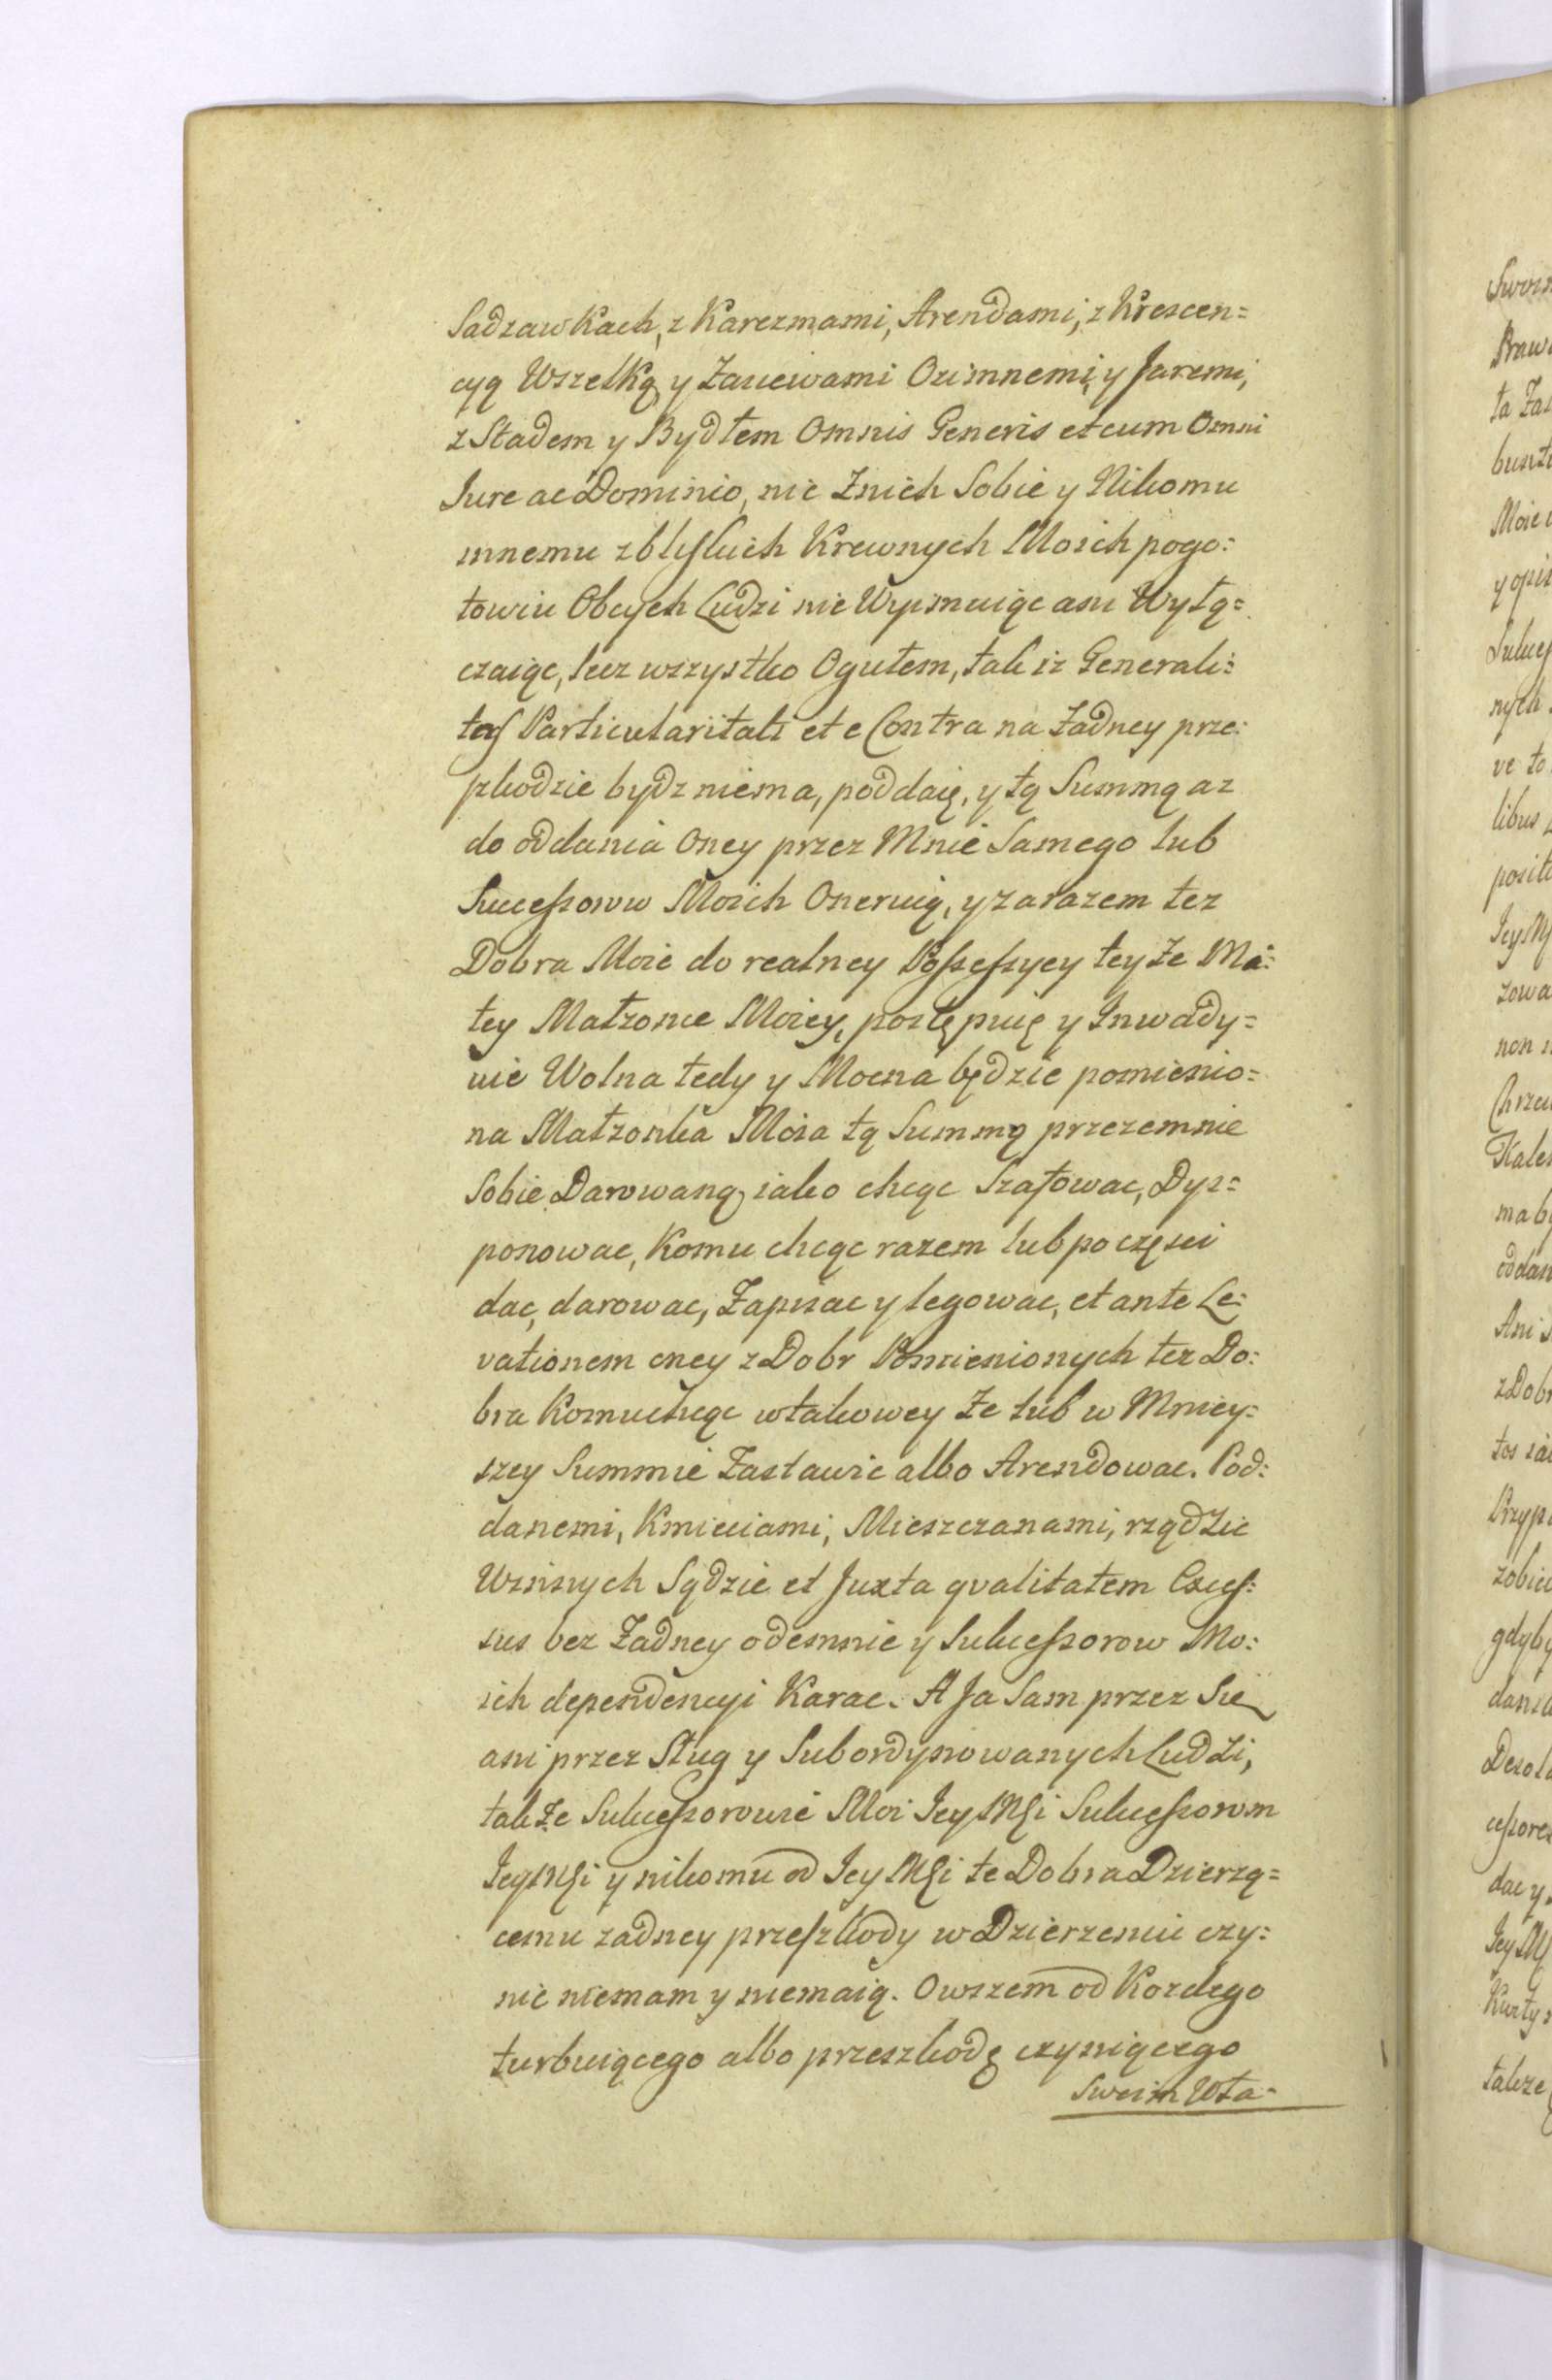 Sadzawkach, z Karczmami, Arendami, z Krescen=
cyą Wszelką y Zasiewami Ozimnemi, y Jaremi,
z Stadem y Bydłem Omnis Generis et cum Omni
Jure ac Dominio, nic Znich Sobie y Nikomu
innemu zbliskich Krewnych Moich pogo:
towiu Obcych Ludzi nie Wyimuiąc ani Wyłą=
czaiąc, lecz wszystko Ogułem, tak iz Generali:
tas Particularitati et e Contra na Żadney prze:
szkodzie bydz niema, poddaię, y tą Summą az
do oddania Oney przez Mnie Samego lub
Successorow Moich Oneruię, y zarazem tez
Dobra Moie do realney Possessyey teyże Mi:
łey Małzonce Moiey, postępuię y Inwady=
uie Wolna tedy y Mocna będzie pomienio=
na Małzonka Moia tą Summą przezemnie
Sobie Darowaną iako chcąc Szafowac, Dys=
ponowac, Komu chcąc razem lub po częsci
dac, darowac, Zapisac y legowac, et ante Le:
vationem oney z Dobr Pomienionych tez Do:
bra Komuchcąc wtakowey że lub w Mniey:
szey Summie Zastawic albo Arendowac. Pod:
danemi, Kmieciami, Mieszczanami, rządzic
Winnych Sądzic et Juxta qvalitatem Exces:
sus bez Żadney odemnie y Sukcessorow Mo:
ich dependencyi Karac. A Ja Sam przez Się
ani przez Sług y Subordynowanych Ludzi,
także Sukcessorowie Moi JeyMsi Sukcessorom
JeyMsi y nikomu od JeyMsi te Dobra Dzierzą=
cemu zadney przeszkody w Dzierzeniu czy:
nic niemam y niemaią. Owszem od Kozdego
turbuiącego albo przeszkodę czyniącego
Swoim Wła=
Braw
ta Za